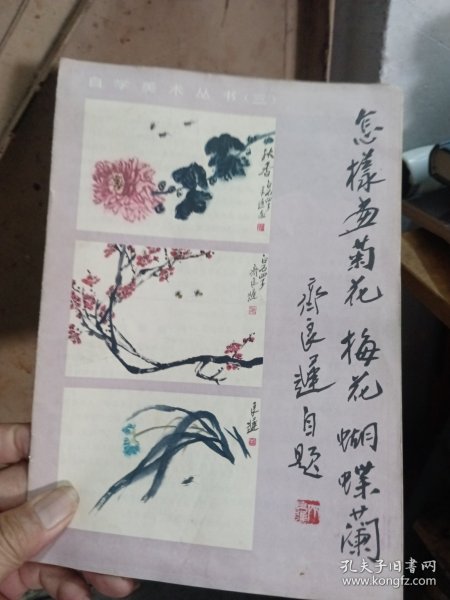 自学美术丛书(三)
怎樣畫菊花 梅花 蝴蝶蘭
齊良遲自題
秋香
良遲
孔夫子旧书网
www.kongfz.com